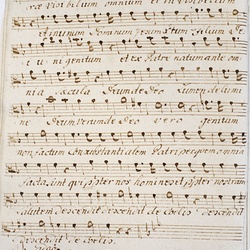 rae visibilium omnium et invisibilium
et in unum Dominum Jesum xtum Filium De
i uni genitum et ex Patre natum ante om
nia saecula Deum de Deo lumen de lumi
ne Deum verum de Deo vero genitum
non factum Consubstantialem Patri per quem omnia
facta sunt qui propter nos homines et propter nostram
salutem descendit descendit de Coelis descendit
descendit de Coelis.